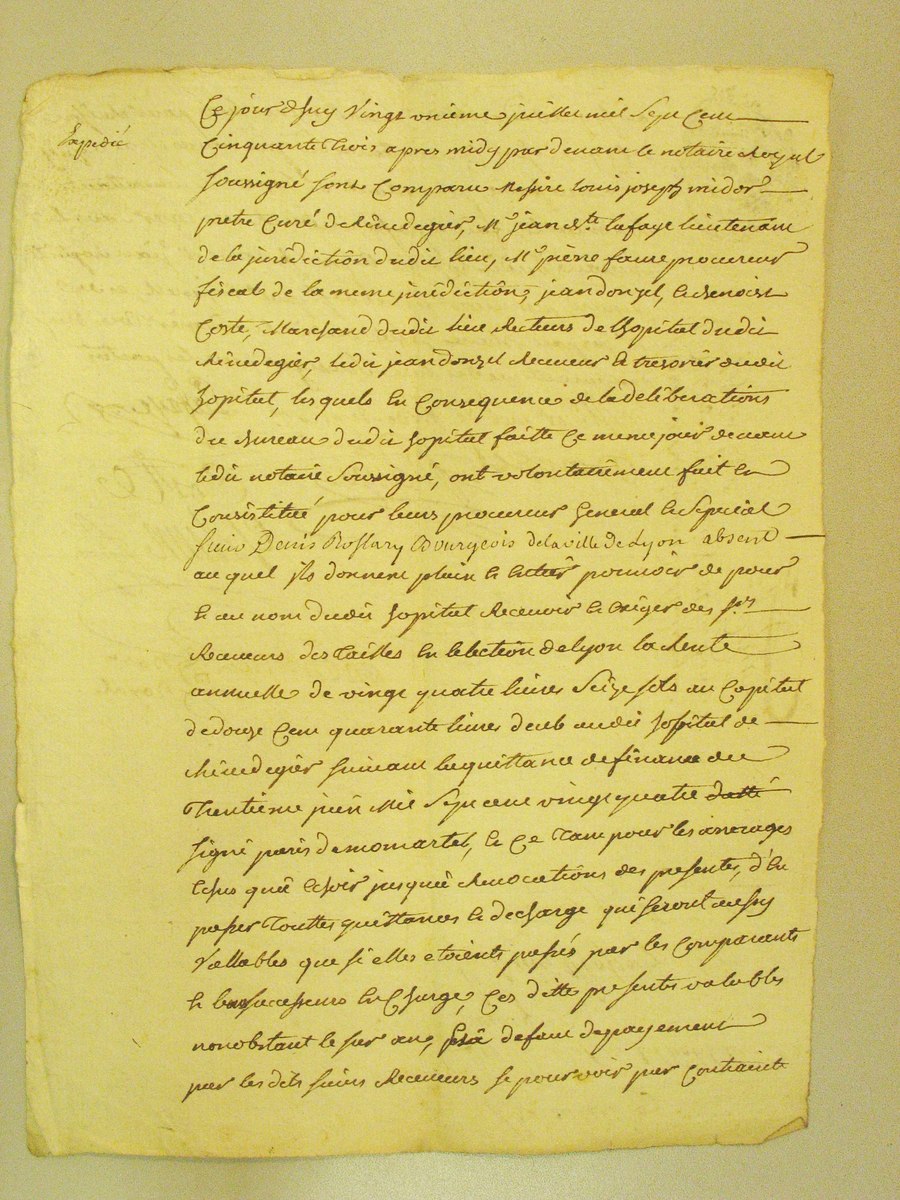 Expedié
Ce jour dhuy vingt unieme juillet mil sept cent
cinquante trois apres midy par devant le notaire Royal
soussigné sont comparu Messire louis joseph midor
pretre curé de Rivedegier, Mr jean Bte lafaye lieutenant
de la jurediction dudit lieu, Mr pierre faure procureur
fiscal de la meme jurediction, jean donzel, et Benoist
Coste, Marchand dudit lieu Recteurs de lhopital dudit
Rivedegier, ledit jean donzel Receveur et tresorier dudit
hopital, lesquels en consequence de la deliberations
du Bureau dudit hopital faitte ce meme jour devant
ledit notaire soussigné, ont volontairement fait et
constitué pour leurs procureur general et special
sieur Denis Rostary Bourgeois de la ville de Lyon absent
au quel ils donnent plein et entier pouvoir de pour
et au nom dudit hopital Recevoir et exiger des srs
Receveurs des tailles en lelection de lyon la Rente
annuelle de vingt quatre livres seize sols au capital
de douze cent quarante livres deub audit hopital de
Rivedegier suivant la quittance de finance du
trentieme juin mil sept cent vingt quatre datté
signé paris de momartel, et ce tam pour les arrerages
echus qua echoir jusqua Revocations des presentes, d'en
passer touttes quittances et decharge qui seront aussy
vallables que si elles etoients passés par les comparants
et leur successeurs en charge, ces ditte presentes valables
nonobstant le sur an, et a defaut de payement
par les dits sieurs Receveurs se pourvoir par contrainte